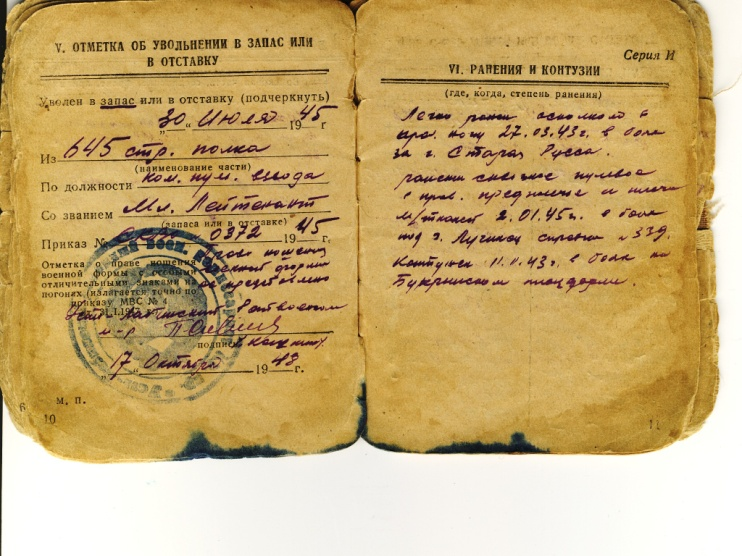 V. ОТМЕТКА ОБ УВОЛЬНЕНИИ В ЗАПАС ИЛИ
В ОТСТАВКУ
Уволен в запас или в отставку (подчеркнуть)
„30" Июля 1945 г
Из 645 стр. полка
(наименование части)
По должности ком. пул. взвода
Со званием Мл. Лейтенант
(запаса или в отставке)
Приказ № 0372 1945
Отметка о праве ношения
военной формы с особыми
отличительными знаками на
погонах (излагается точно по
приказу МВС № 4
подпись
„17" Октября 1948 г.
М. П.
6
10
Серия И
VI. РАНЕНИЯ И КОНТУЗИИ
(где, когда, степень ранения)
Легко ранен осколком в
прав. ногу 27.03.43г. в боях
за г. Старая Русса.
ранение пулевое
в прав. предплечье и плеча
м/тканей 2.01.45г. в боях
под г. Лучинец справка №339.
Контузия 11.11.43г. в боях на
Букринском плацдарме.
11